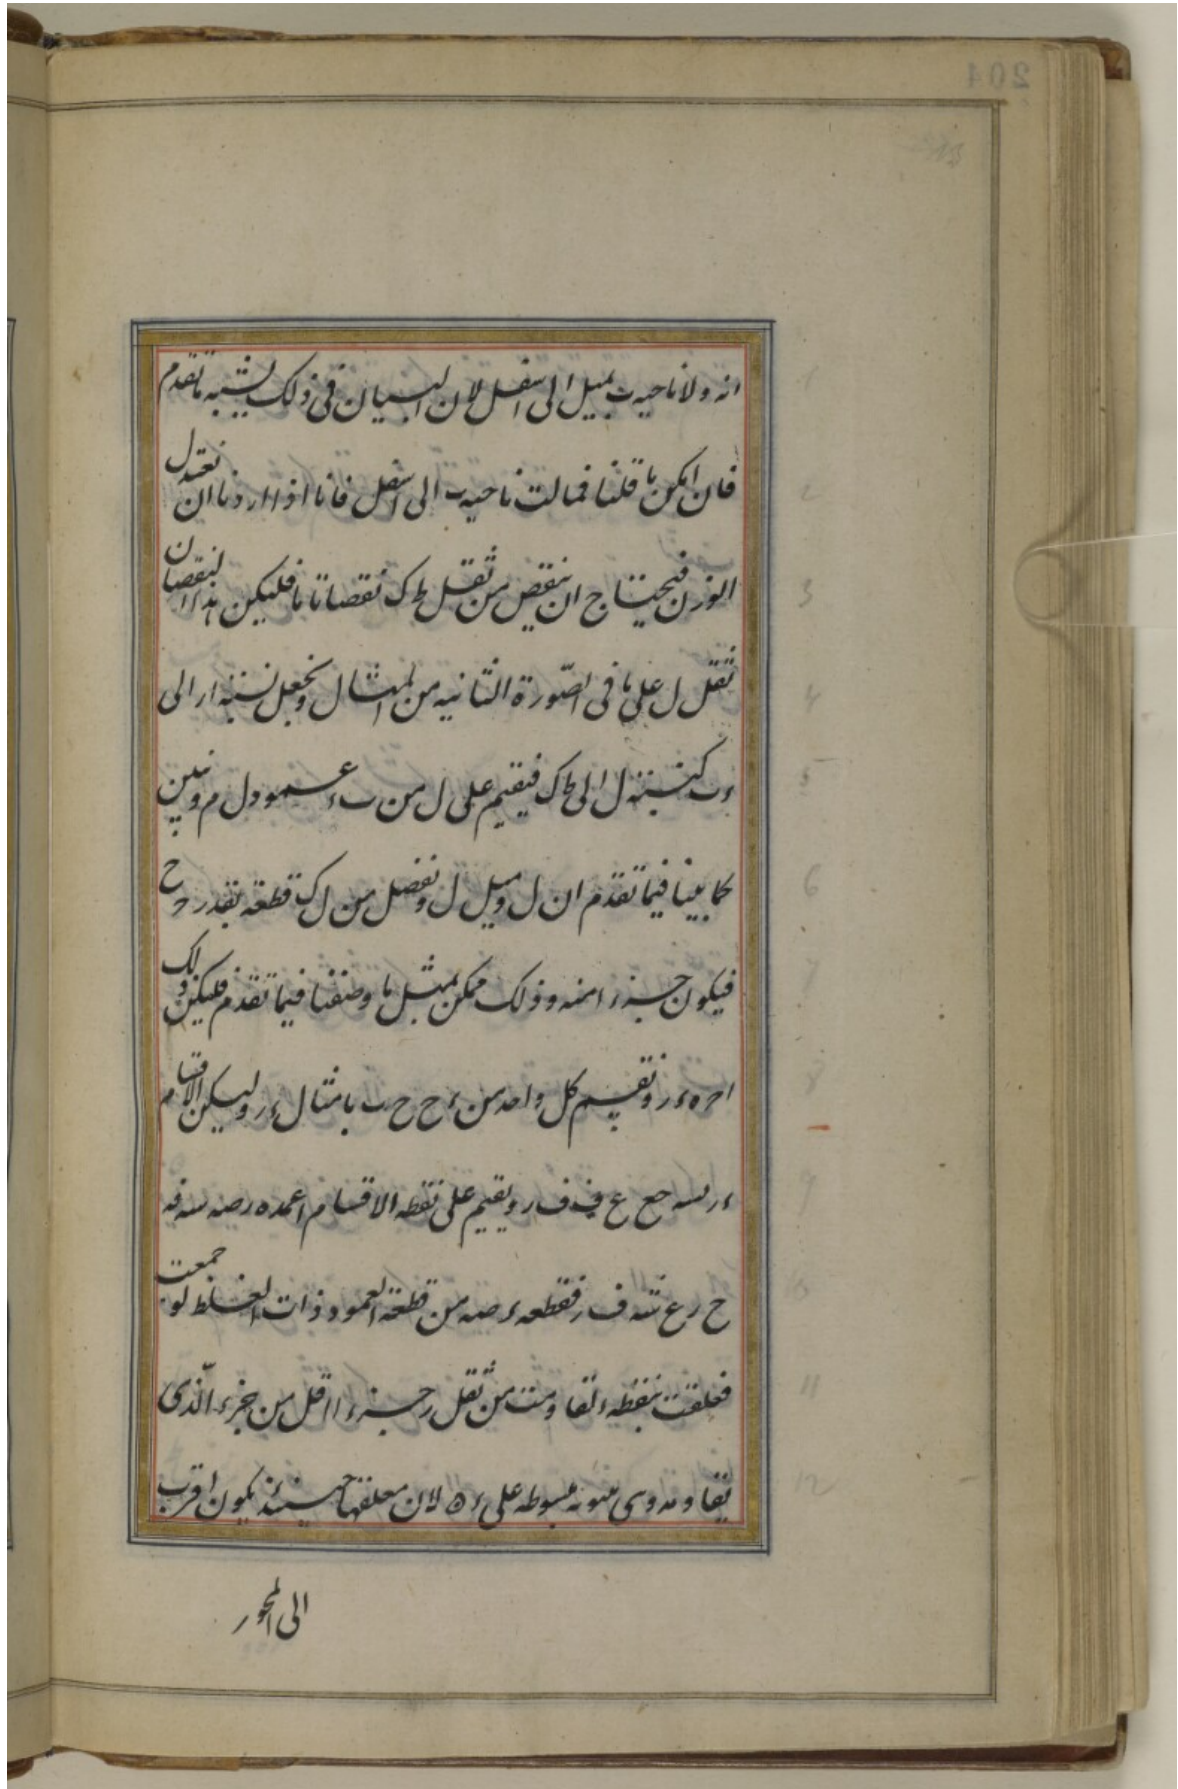 204
انه ولا ناحيه ب تميل الى اسفل لان البيان فى ذلك يشبه ما تقدم
فان امكن ما قلنا فمالت ناحيه ب الى اسفل فانا اذا اردنا ان نعتدل
الوزن فيحتاج ان ينقص من ثقل ط ك نقصانا ما فليكن هذا النقصان
ثقل ل على ما فى الصّورة الثانيه من المثال ونجعل نسبة ار الى
ء ب كنسبة ل الى ط ك فيقيم على ل من ب ء عمود ل م ونبين
كما بينا فيما تقدم ان ل و ميل ل ونفصل من ل ك قطعه بقدر ح
فيكون جزءا منه وذلك ممكن بمثل ما وصفنا فيما تقدم فليكن ذلك
ونقسم كل واحد من ء ح ح ب بامثال ء ر وليكن الاقسام
ويقيم على نقطه الاقسام اعمده
فقطعه ء صه من قطعة العمود ذات الغلظ لو جمعت
فعلقت بنقطه ء لقاومت من ثقل ر جزءا اقل من جزء الّذى
تقاومه وهى مبسوطه على ء لان معلقها حينئذ يكون اقرب
الى المحور